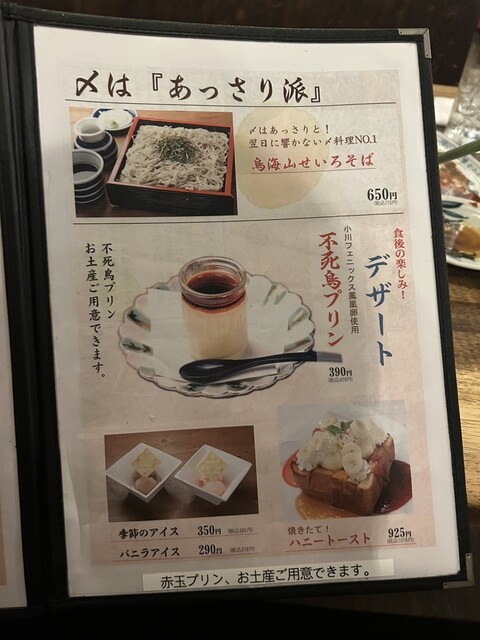 〆は『あっさり派』
〆はあっさりと！
翌日に響かない〆料理NO.1
鳥海山せいろそば
650円
食後の楽しみ！
デザート
小川フェニックス鳳凰卵使用
不死鳥プリン
390円
不死鳥プリン
お土産ご用意できます。
季節のアイス 350円
バニラアイス 290円
焼きたて！
ハニートースト 925円
赤玉プリン、お土産ご用意できます。